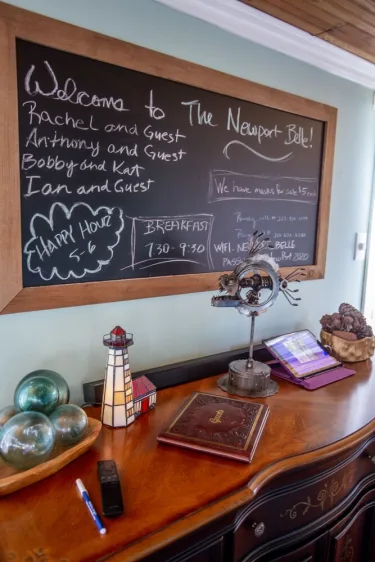 Welcome to The Newport Belle!
Rachel and Guest
Anthony and Guest
Bobby and Kat
Ian and Guest
We have masks for sale $5 each
HAPPY HOUR
5-6
BREAKFAST
730-9:30
WIFI: NEWPORT BELLE
Guests